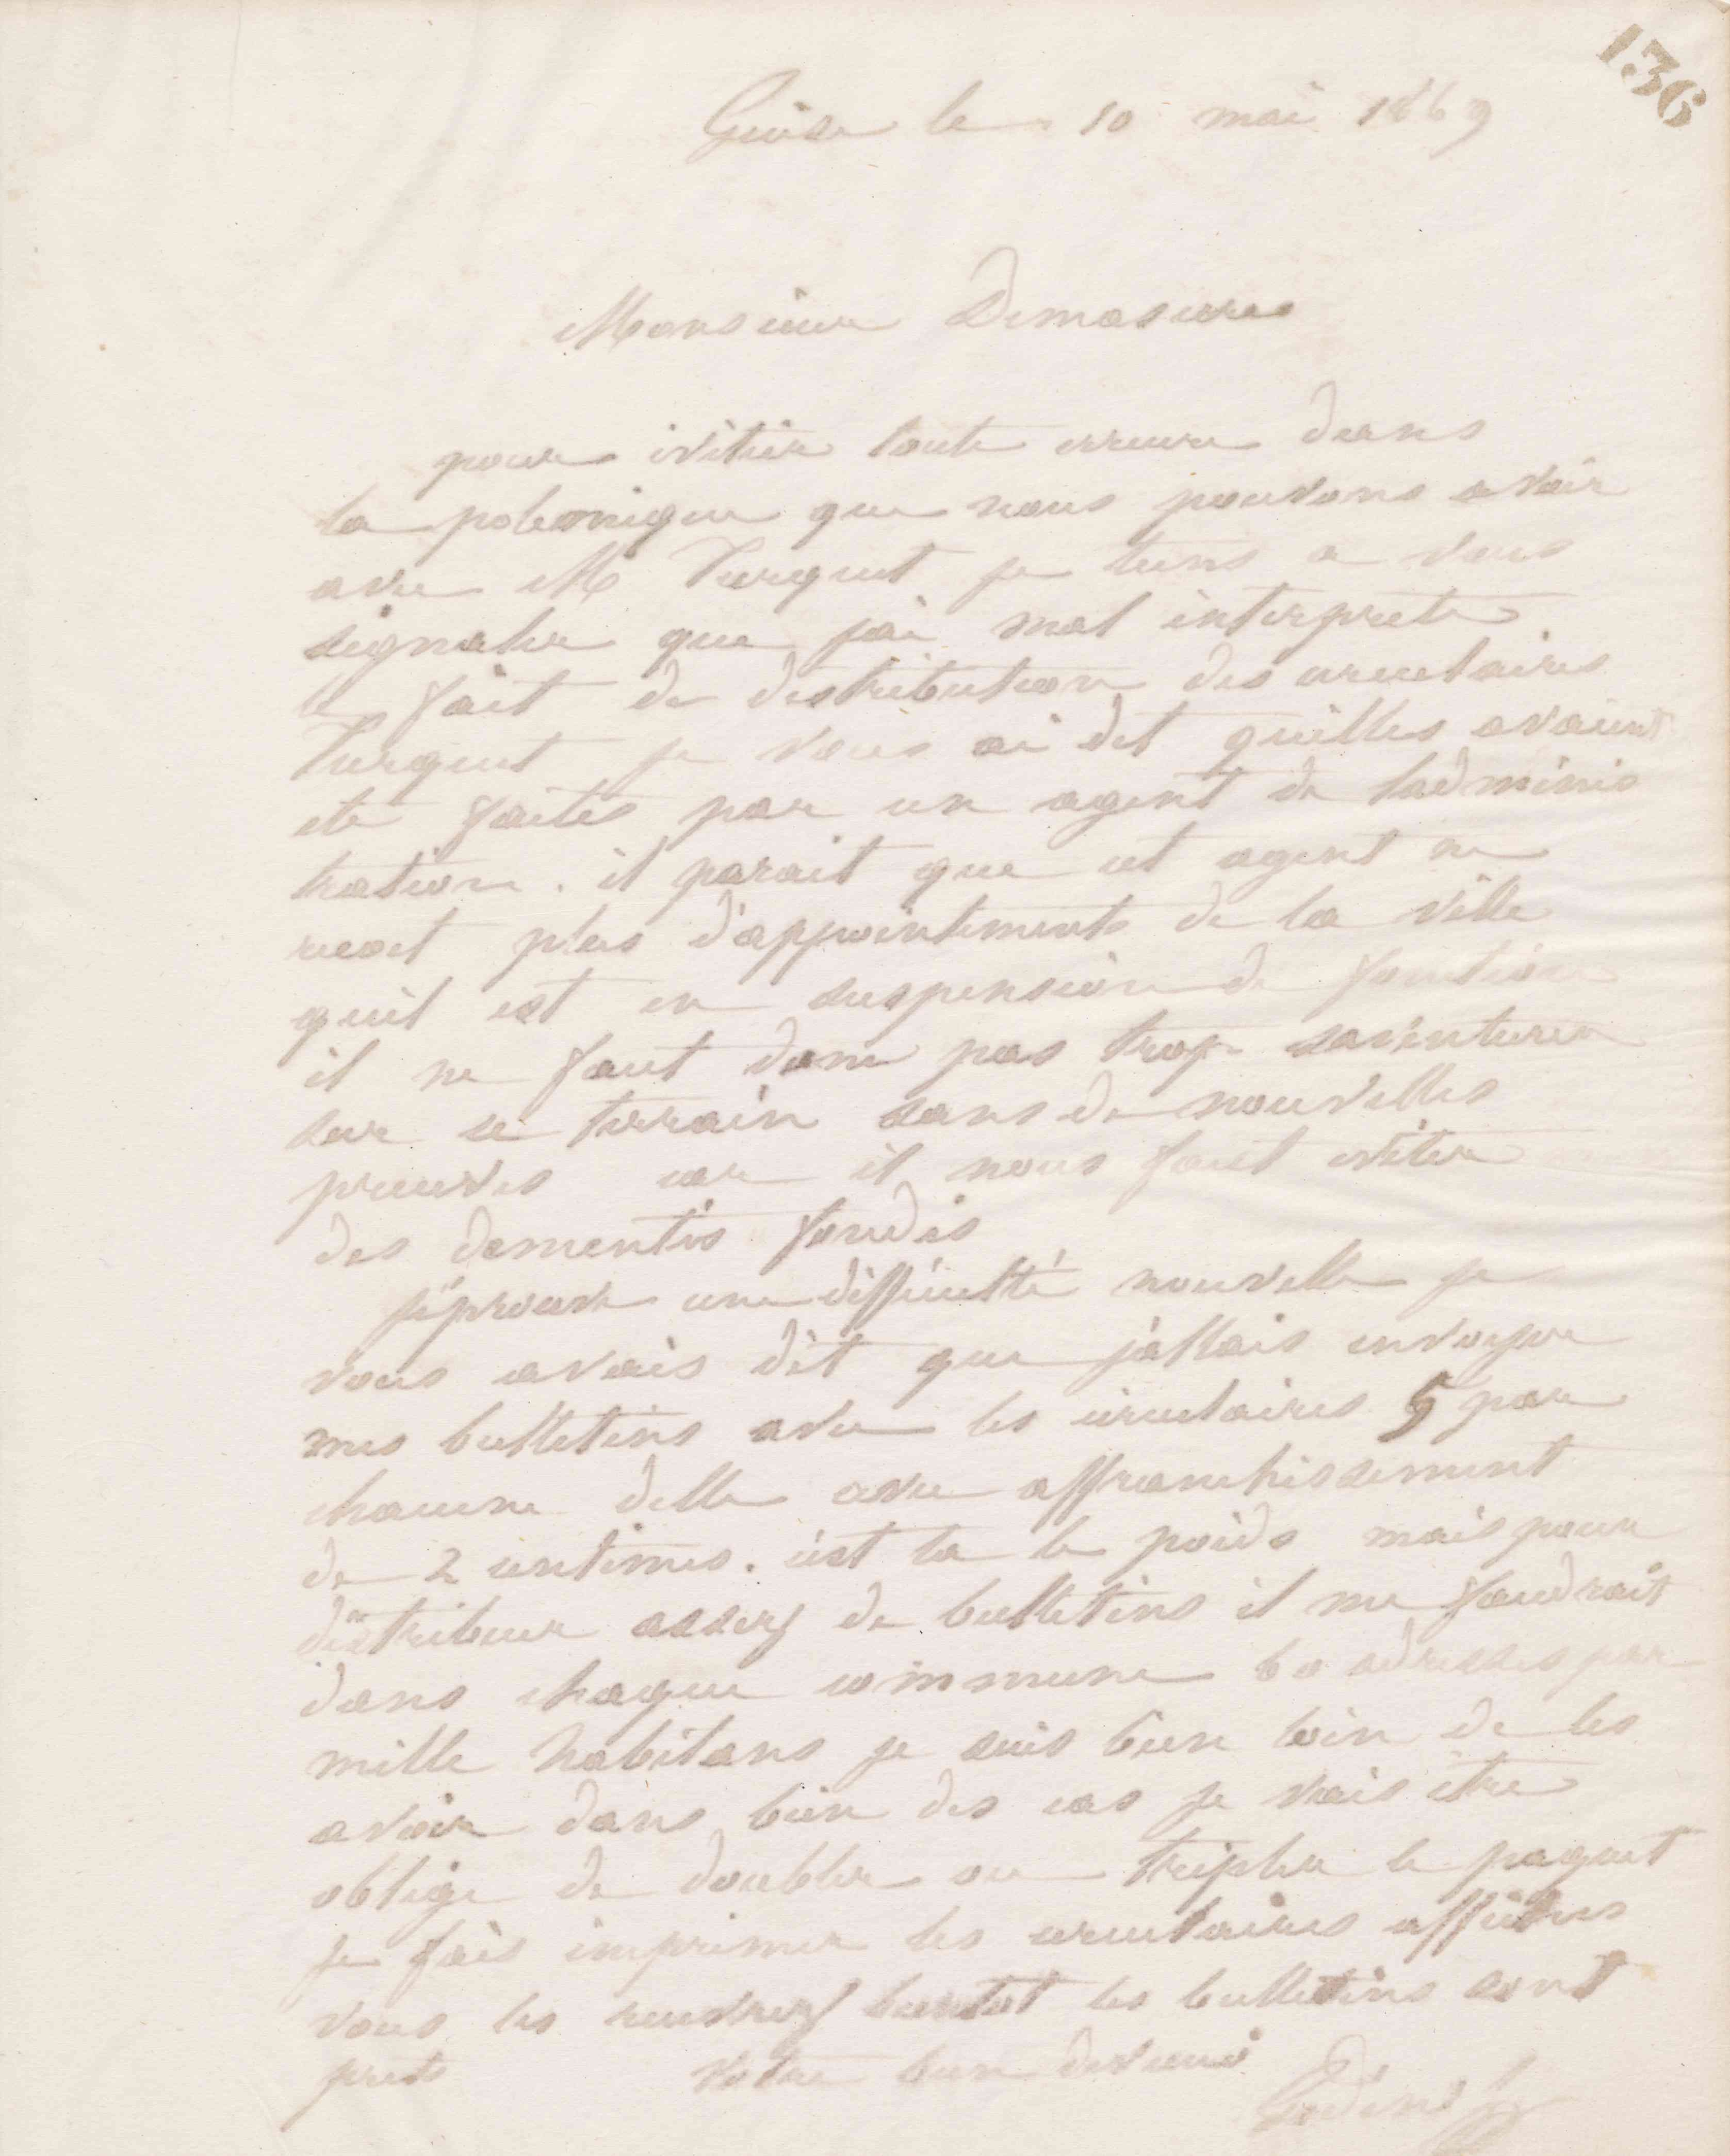 136
Guise le 10 mai 1869
Monsieur Demasures
pour eviter toute erreur dans
la polemique que nous pouvons avoir
avec M Turquet je tiens a vous
signaler que jai mal interprete
le fait de distribution des circulaires
Turquet je vous ai dit quelles avaient
ete faites par un agent de ladminis
tration. il parait que cet agent ne
recoit plus d'appointements de la ville
quil est en suspension de fonction
il ne faut donc pas trop saventurer
sur ce terrain sans de nouvelles
preuves car il nous faut eviter
des dementis fondés
j'éprouve une difficulté nouvelle je
vous avais dit que j'allais envoyer
mes bulletins avec les circulaires 5 par
chacune delle avec affranchissement
de 2 centimes. cest la le poids mais pour
distribuer assez de bulletins il me faudrait
dans chaque commune 60 adresses par
mille habitans je suis bien loin de les
avoir dans bien des cas je vais être
oblige de doubler ou tripler le paquet
je fais imprimer les circulaires affiches
vous les recevrez bientot les bulletins sont
prets votre bien devoué
Godin